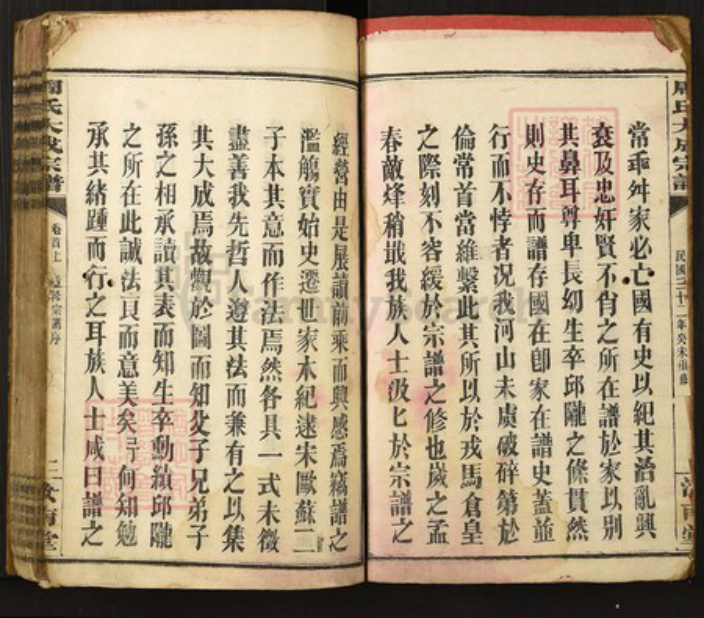 周氏大成宗譜
民國三十二年癸未重修
汝南堂
常乖舛家必亡國有史以紀其治亂興
衰及忠奸賢不肖之所在譜於家以別
其鼻耳尊卑長幼生卒邱隴之條貫然
則史存而譜存國在卽家在譜史蓋並
行而不悖者況我河山未虞破碎第於
倫常首當維繫此其所以於戎馬倉皇
之際刻不容緩於宗譜之修也歲之孟
春敵烽稍戢我族人士汲匕於宗譜之
經營由是展讀前乘而興感焉竊譜之
濫觴實始史遷世家本紀逮宋歐蘇二
子本其意而作法焉然各具一式未徵
盡善我先哲人遵其法而兼有之以集
其大成焉故觀於圖而知父子兄弟子
孫之相承讀其表而知生卒動績邱隴
之所在此誠法良而意美矣予何知勉
承其緒踵而行之耳族人士咸曰譜之
周氏大成宗譜
卷首上
修宗譜序
三
汝南堂